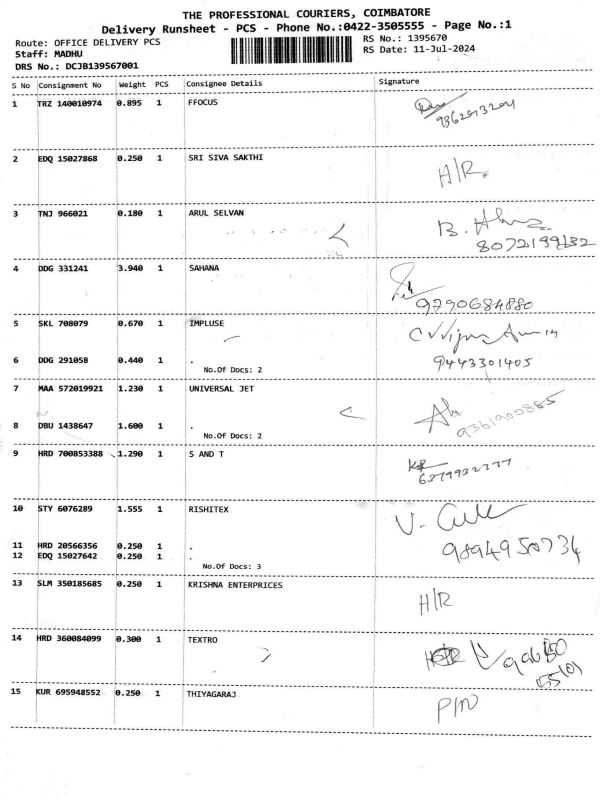 THE PROFESSIONAL COURIERS, COIMBATORE
Delivery Runsheet - PCS - Phone No.:0422-3505555 - Page No.:1
Route: OFFICE DELIVERY PCS
RS No.: 1395670
Staff: MADHU
RS Date: 11-Jul-2024
DRS No.: DCJB139567001
S No Consignment No Weight PCS Consignee Details Signature
1 TRZ 140010974 0.895 1 FFOCUS
2 EDQ 15027868 0.250 1 SRI SIVA SAKTHI
H/R.
3 TNJ 966021 0.180 1 ARUL SELVAN
B.
4 DDG 331241 3.940 1 SAHANA
9790684880
5 SKL 708079 0.670 1 IMPLUSE
6 DDG 291058 0.440 1 .
9443301405
No.Of Docs: 2
7 MAA 572019921 1.230 1 UNIVERSAL JET
8 DBU 1438647 1.600 1 .
9361900855
No.Of Docs: 2
9 HRD 700853388 1.290 1 S AND T
6379932777
10 STY 6076289 1.555 1 RISHITEX
V.
11 HRD 20566356 0.250 1 .
12 EDQ 15027642 0.250 1 .
9894950734
No.Of Docs: 3
13 SLM 350185685 0.250 1 KRISHNA ENTERPRICES
H/R
14 HRD 360084099 0.300 1 TEXTRO
15 KUR 695948552 0.250 1 THIYAGARAJ